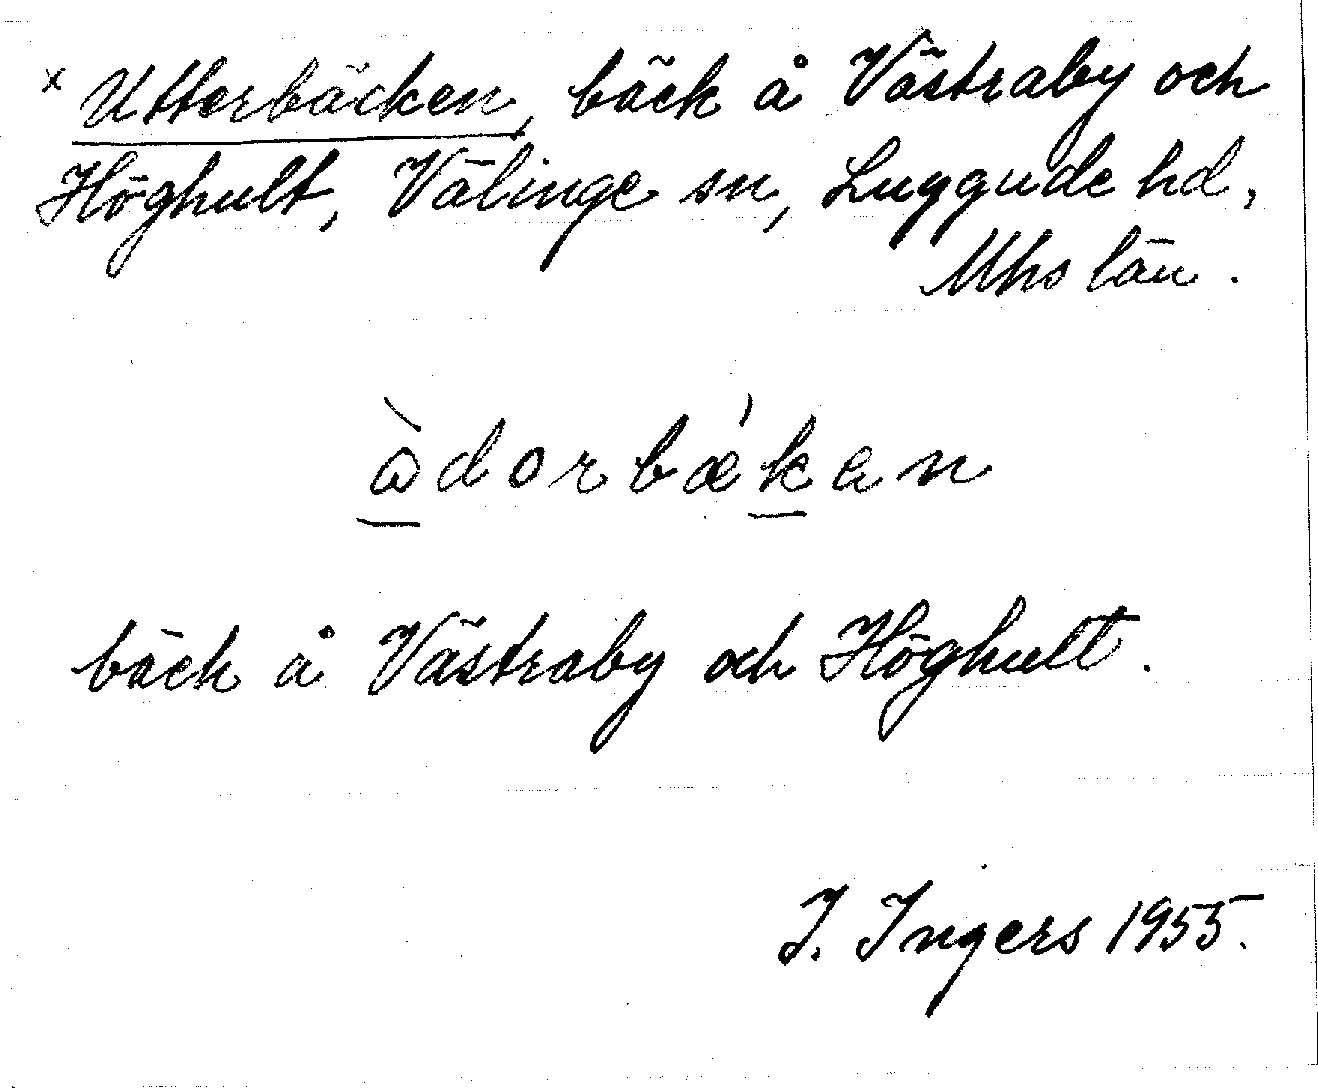 x Utterbäcken, bäck å Västraby och
Höghult, Välinge sn, Luggude hd,
Mhs län.
àdorbǽkan
bäck å Västraby och Höghult.
I. Ingers 1955.